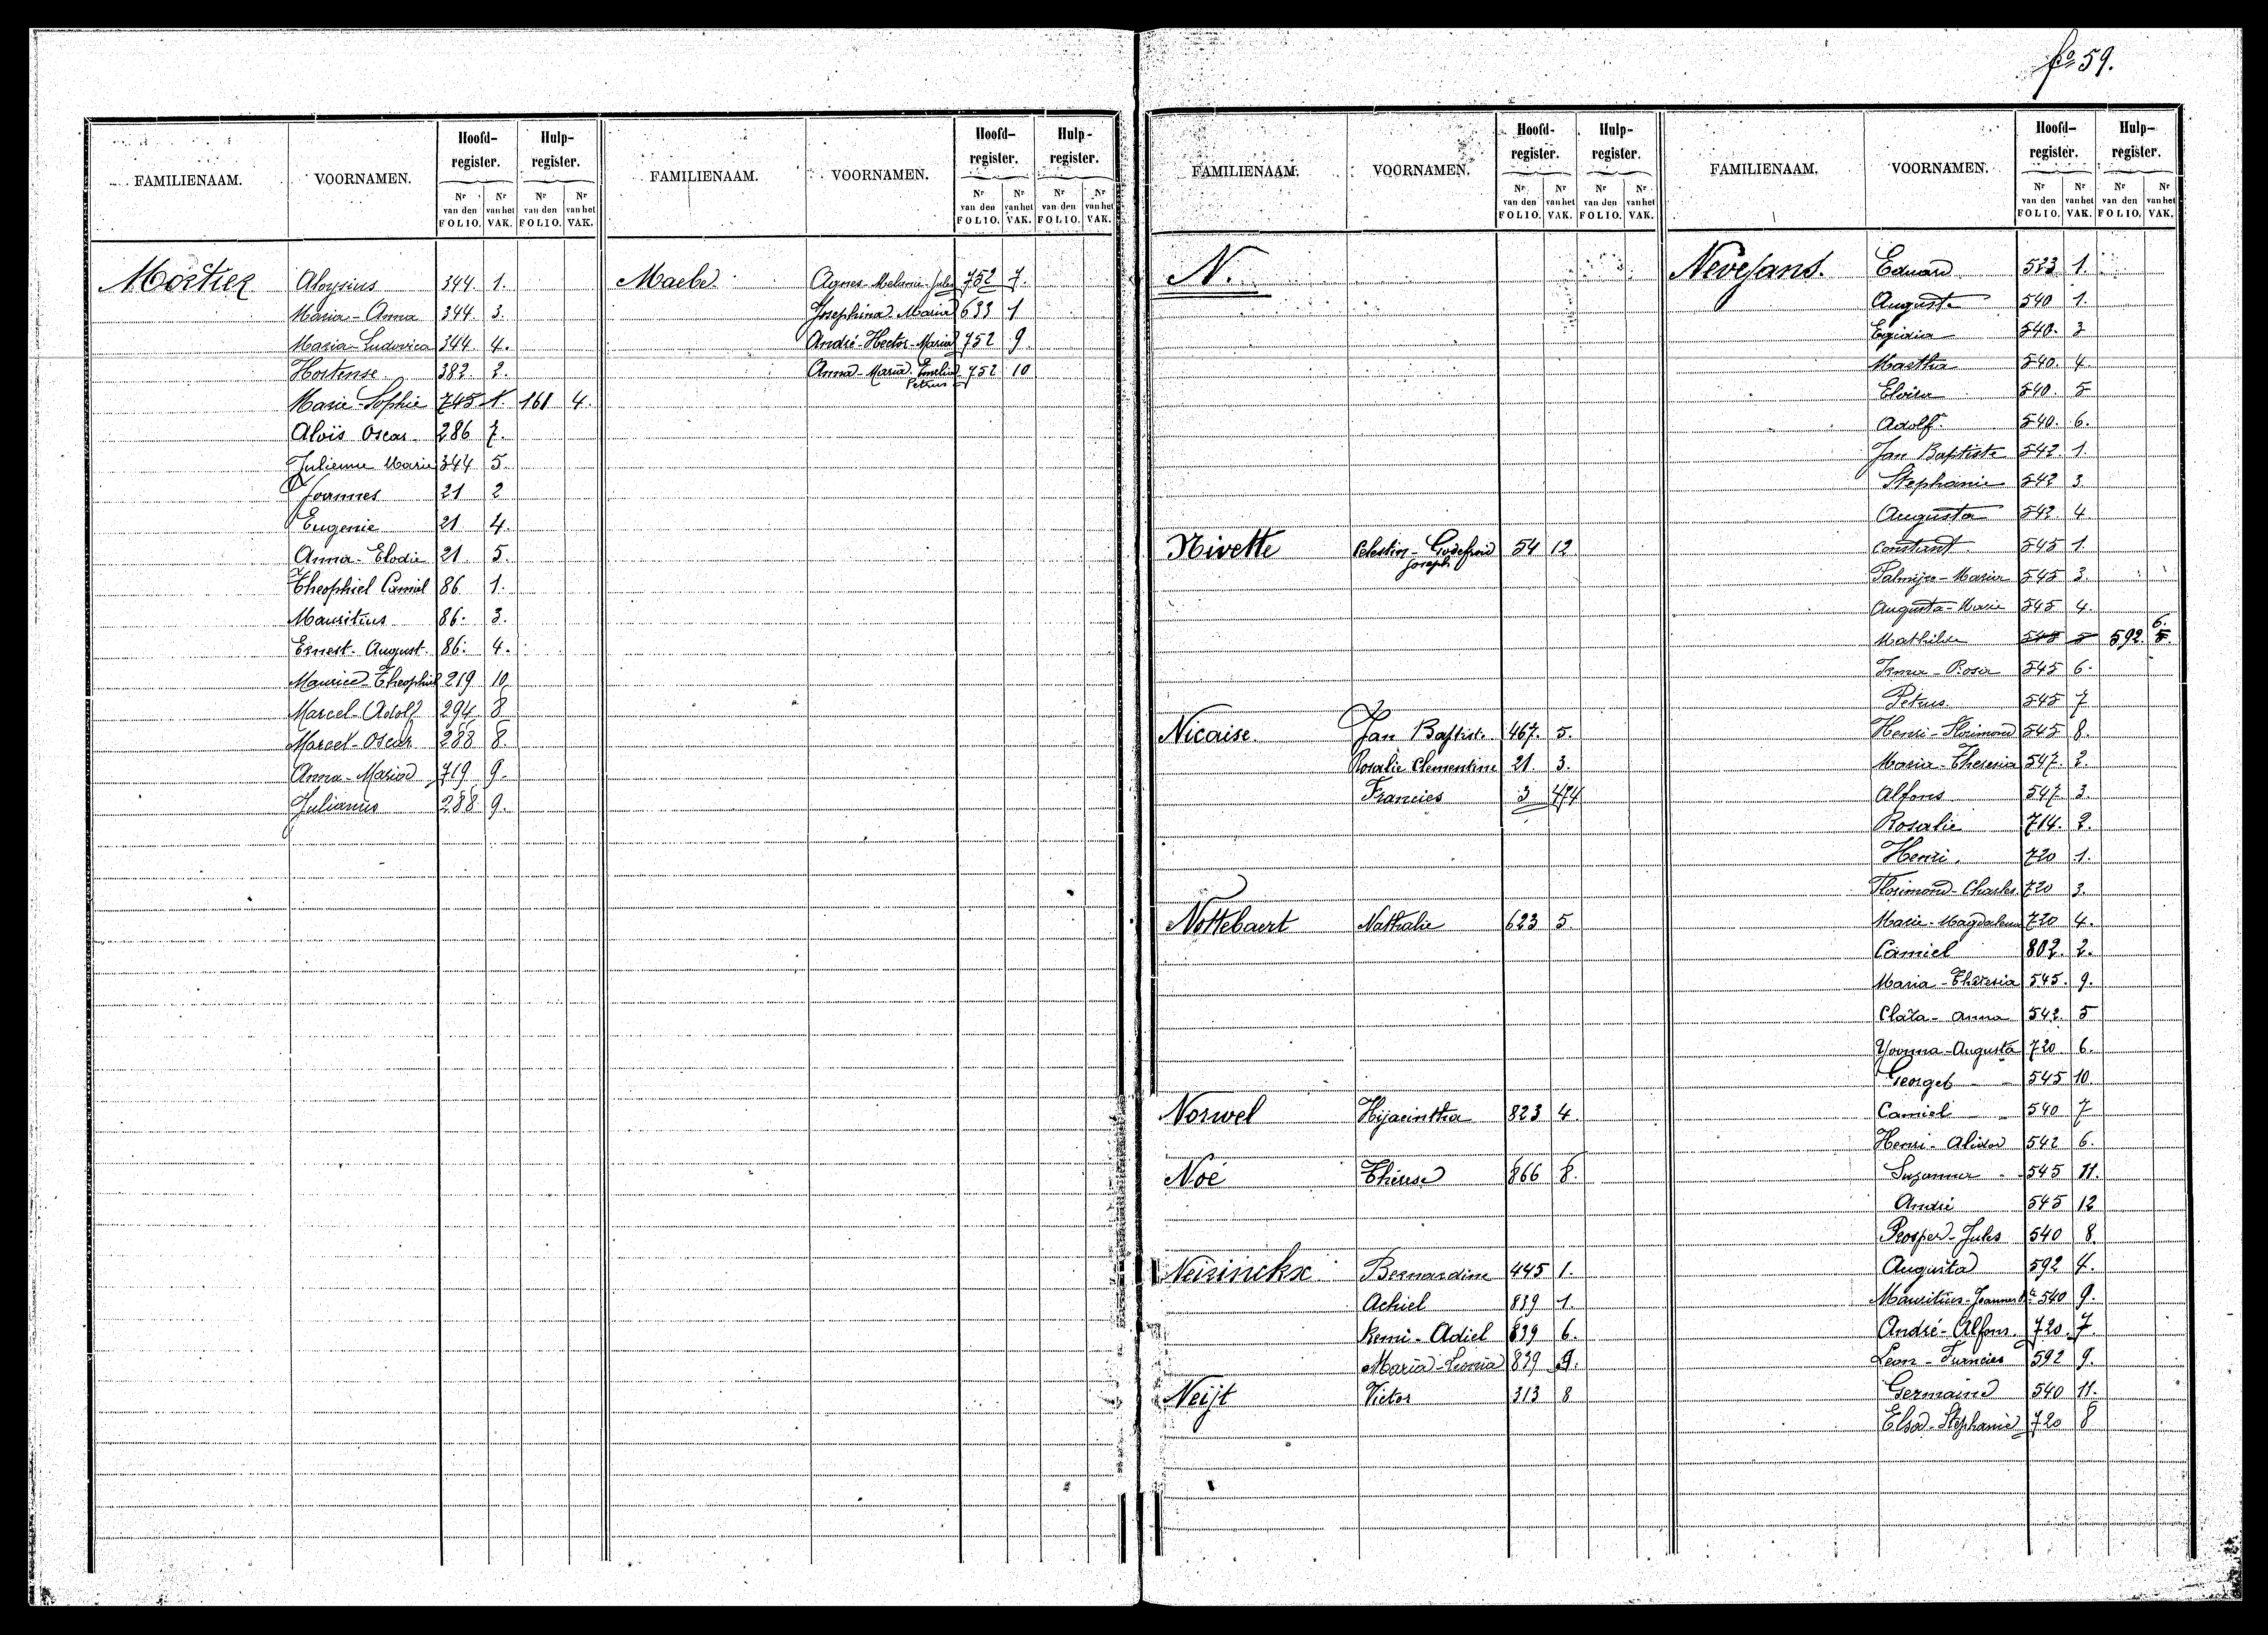 fo 59.
FAMILIENAAM. VOORNAMEN. Hoofd-register. Hulp-register.
Nr van den FOLIO. Nr van het VAK. Nr van den FOLIO. Nr van het VAK.
Mortier Aloysius 344 1.
Maria-Anna 344 3.
Maria-Ludovica 344 4.
Hortense 382 2.
Marie-Sophie 745 1. 161 4.
Aloïs Oscar 286 7.
Julienne Marie 344 5.
Joannes 21 2
Eugenie 21 4.
Anna-Elodie 21 5.
Theophiel Camiel 86 1.
Mauritius 86. 3.
Ernest-August 86. 4.
Maurice-Theophiel 219 10
Marcel-Adolf 294 8
Marcel-Oscar 288 8.
Anna-Maria 719 9.
Julianus 288 9.
FAMILIENAAM. VOORNAMEN. Hoofd-register. Hulp-register.
Nr van den FOLIO. Nr van het VAK. Nr van den FOLIO. Nr van het VAK.
Maebe Agnes-Melanie-Jules 752 7.
Josephina-Maria 633 1
André-Hector-Maria 752 9.
Anna-Maria-Emelia 752 10
Petrus
FAMILIENAAM. VOORNAMEN. Hoofd-register. Hulp-register.
Nr van den FOLIO. Nr van het VAK. Nr van den FOLIO. Nr van het VAK.
N.
Nivette Celestin-Godefroid 54 12
Joseph
Nicaise Jan Baptist 467. 5.
Rosalie Clementine 21 3.
Francies 3 474
Nottebaert Nathalie 623 5.
Norwel Hijacintha 823 4.
Noé Thérese 866 8.
Neirinckx Bernardine 445 1.
Achiel 839 1.
Remi-Adiel 839 6.
Maria-Leonia 839 9.
Neijt Victor 313 8
FAMILIENAAM. VOORNAMEN. Hoofd-register. Hulp-register.
Nr van den FOLIO. Nr van het VAK. Nr van den FOLIO. Nr van het VAK.
Nevejans. Eduard 523 1.
Auguste 540 1.
Egidia 540. 3
Martha 540. 4.
Eloïsa 540. 5
Adolf 540. 6.
Jan Baptiste 542. 1.
Stephanie 542 3.
Augusta 542 4
Constant 545 1.
Palmijre-Maria 545 3.
Augusta-Marie 545 4.
Mathilde 545 5 592 5. 6.
Irma-Rosa 545 6.
Petrus 545 7
Henri-Florimond 545 8.
Maria-Theresia 547. 2.
Alfons 547. 3.
Rosalie 714. 2.
Henri. 720 1.
Florimond-Charles 720 3.
Marie-Magdalena 720 4.
Camiel 802. 2.
Maria-Theresia 545. 9.
Clara-Anna 542. 5
Yvonna-Augusta 720 6.
Georges 545 10
Camiel 540 7
Henri-Alidor 542 6.
Suzanna 545 11.
André 545 12
Prosper-Jules 540 8.
Augusta 592 4.
Mauritius-Joannes 540 9.
André-Alfons 720 7.
Leon-Francies 592 9.
Germaine 540 11.
Elsa-Stephanie 720 8